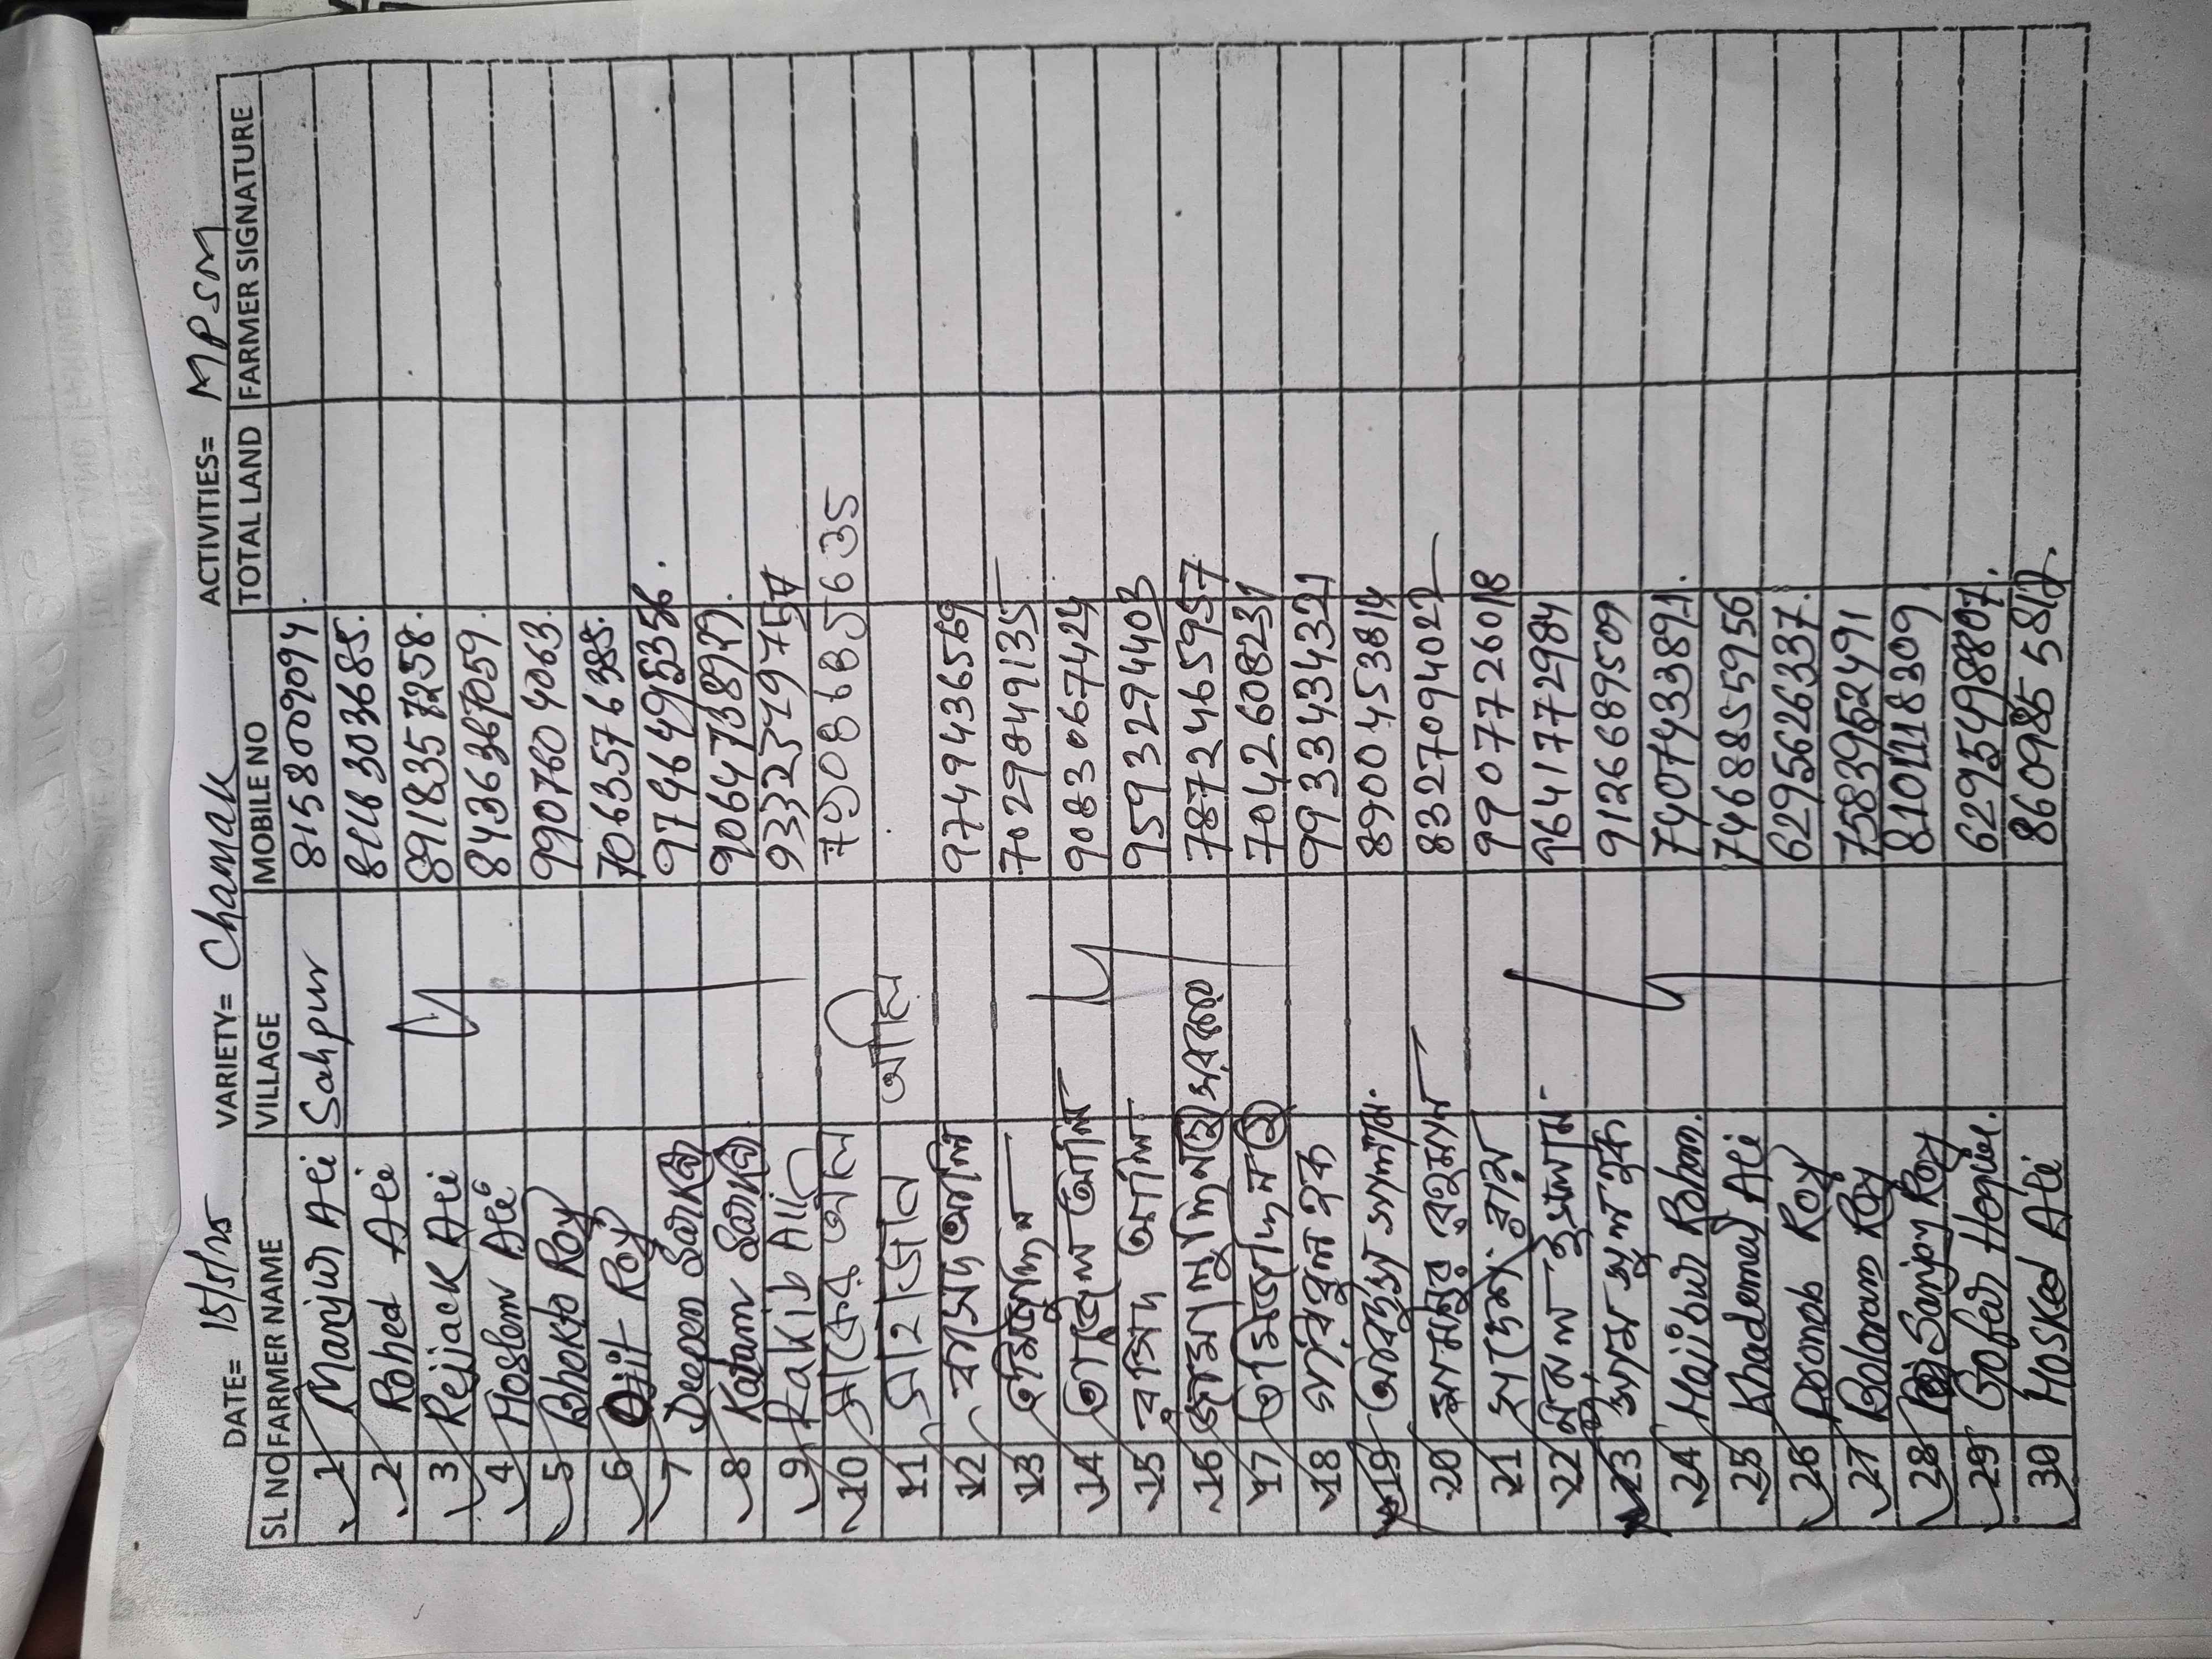 DATE= 15/5/25 VARIETY= Chamak ACTIVITIES= MPSM
SL NO FARMER NAME VILLAGE MOBILE NO TOTAL LAND FARMER SIGNATURE
1 Manjur Ali Sahpur 8158009094.
2 Rohed Ali 8116303685.
3 Rejjack Ali 8918357258.
4 Moslem Ali 8436367059.
5 Bhokto Roy 9907604063.
6 Ojit Roy 7063576385.
7 Deepen Sarkar 9794649535 .
8 Katam Sarkar 906473892.
9 Rakib Alli 93323797
10 সাকের আলি 7908685635
11 সাহাজান আলি
12 রাসেদ আলি 9749436569
13 তমিজুদ্দিন 7029849135
14 তাজুল আলি 9083067424
15 রসিদ আলি 9593294403
16 জামালুদ্দিন সরকার 7872465957
17 তমিজদ্দিন 7042608231
18 9933434321
19 8900453814
20 রহমান 8327094022
21 রায় 9907726018
22 ইসলাম 7641772984
23 হক 9126689509
24 Hajibur Rohm. 7407433891.
25 Khademed Ali 7468855956
26 Roy 6295626337.
27 Boloram Roy 7583952491
28 Sanjoy Roy 8101118309
29 Gofar 6295498807.
30 Mosked Ali 860985581